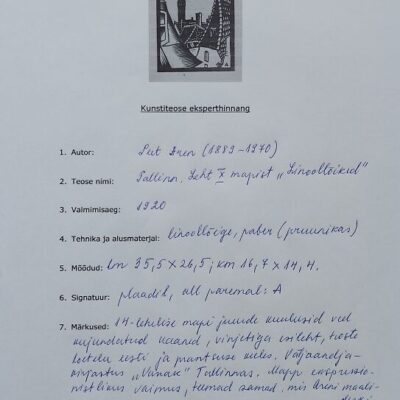 Kunstiteose eksperthinnang
1. Autor: Peet Aren (1889-1970)
2. Teose nimi: Tallinn. Leht X mapist „Linoollõiked"
3. Valmimisaeg: 1920
4. Tehnika ja alusmaterjal: linoollõige, paber (pruunikas)
5. Mõõdud: lm 35,5 x 26,5; km 16,7 x 14,4.
6. Signatuur: plaadil, all paremal: A
7. Märkused: 14-lehelise mapi juurde kuulusid veel
kujundatud kaaned, vinjetiga esileht, teoste
loetelu eesti ja prantsuse keeles. Väljaandja-
kirjastus „Varrak" Tallinnas. Mapp ekspressio-
nistlikus vaimus, teemad samad, mis Areni maali-